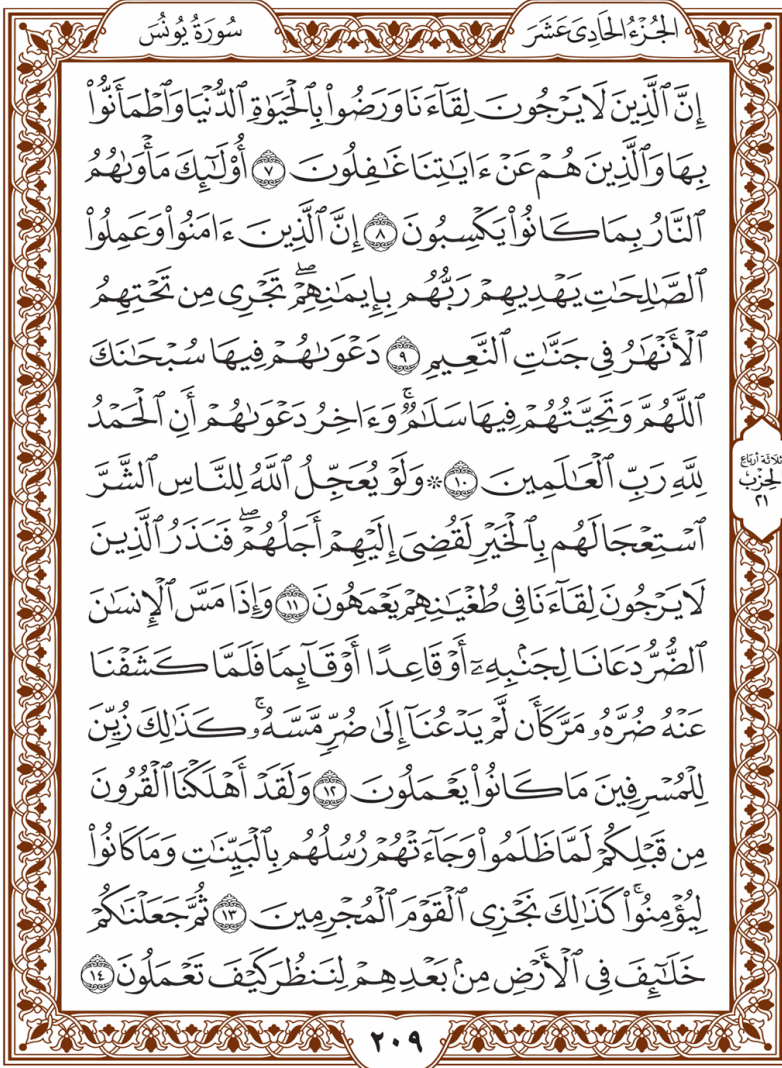 الجُزْءُ الحَادِى عَشَرَ
سُورَةُ يُونُسَ
إِنَّ ٱلَّذِينَ لَا يَرۡجُونَ لِقَآءَنَا وَرَضُواْ بِٱلۡحَيَوٰةِ ٱلدُّنۡيَا وَٱطۡمَأَنُّواْ
بِهَا وَٱلَّذِينَ هُمۡ عَنۡ ءَايَٰتِنَا غَٰفِلُونَ ٧ أُوْلَٰٓئِكَ مَأۡوَىٰهُمُ
ٱلنَّارُ بِمَا كَانُواْ يَكۡسِبُونَ ٨ إِنَّ ٱلَّذِينَ ءَامَنُواْ وَعَمِلُواْ
ٱلصَّٰلِحَٰتِ يَهۡدِيهِمۡ رَبُّهُم بِإِيمَٰنِهِمۡۖ تَجۡرِى مِن تَحۡتِهِمُ
ٱلۡأَنۡهَٰرُ فِى جَنَّٰتِ ٱلنَّعِيمِ ٩ دَعۡوَىٰهُمۡ فِيهَا سُبۡحَٰنَكَ
ٱللَّهُمَّ وَتَحِيَّتُهُمۡ فِيهَا سَلَٰمٌۚ وَءَاخِرُ دَعۡوَىٰهُمۡ أَنِ ٱلۡحَمۡدُ
لِلَّهِ رَبِّ ٱلۡعَٰلَمِينَ ١٠ ۞ وَلَوۡ يُعَجِّلُ ٱللَّهُ لِلنَّاسِ ٱلشَّرَّ
ٱسۡتِعۡجَالَهُم بِٱلۡخَيۡرِ لَقُضِىَ إِلَيۡهِمۡ أَجَلُهُمۡۖ فَنَذَرُ ٱلَّذِينَ
لَا يَرۡجُونَ لِقَآءَنَا فِى طُغۡيَٰنِهِمۡ يَعۡمَهُونَ ١١ وَإِذَا مَسَّ ٱلۡإِنسَٰنَ
ٱلضُّرُّ دَعَانَا لِجَنۢبِهِۦٓ أَوۡ قَاعِدًا أَوۡ قَآئِمًا فَلَمَّا كَشَفۡنَا
عَنۡهُ ضُرَّهُۥ مَرَّ كَأَن لَّمۡ يَدۡعُنَآ إِلَىٰ ضُرٍّ مَّسَّهُۥۚ كَذَٰلِكَ زُيِّنَ
لِلۡمُسۡرِفِينَ مَا كَانُواْ يَعۡمَلُونَ ١٢ وَلَقَدۡ أَهۡلَكۡنَا ٱلۡقُرُونَ
مِن قَبۡلِكُمۡ لَمَّا ظَلَمُواْ وَجَآءَتۡهُمۡ رُسُلُهُم بِٱلۡبَيِّنَٰتِ وَمَا كَانُواْ
لِيُؤۡمِنُواْۚ كَذَٰلِكَ نَجۡزِى ٱلۡقَوۡمَ ٱلۡمُجۡرِمِينَ ١٣ ثُمَّ جَعَلۡنَٰكُمۡ
خَلَٰٓئِفَ فِى ٱلۡأَرۡضِ مِنۢ بَعۡدِهِمۡ لِنَنظُرَ كَيۡفَ تَعۡمَلُونَ ١٤
ثلاثة أرباع
الحِزْب
٢١
٢٠٩